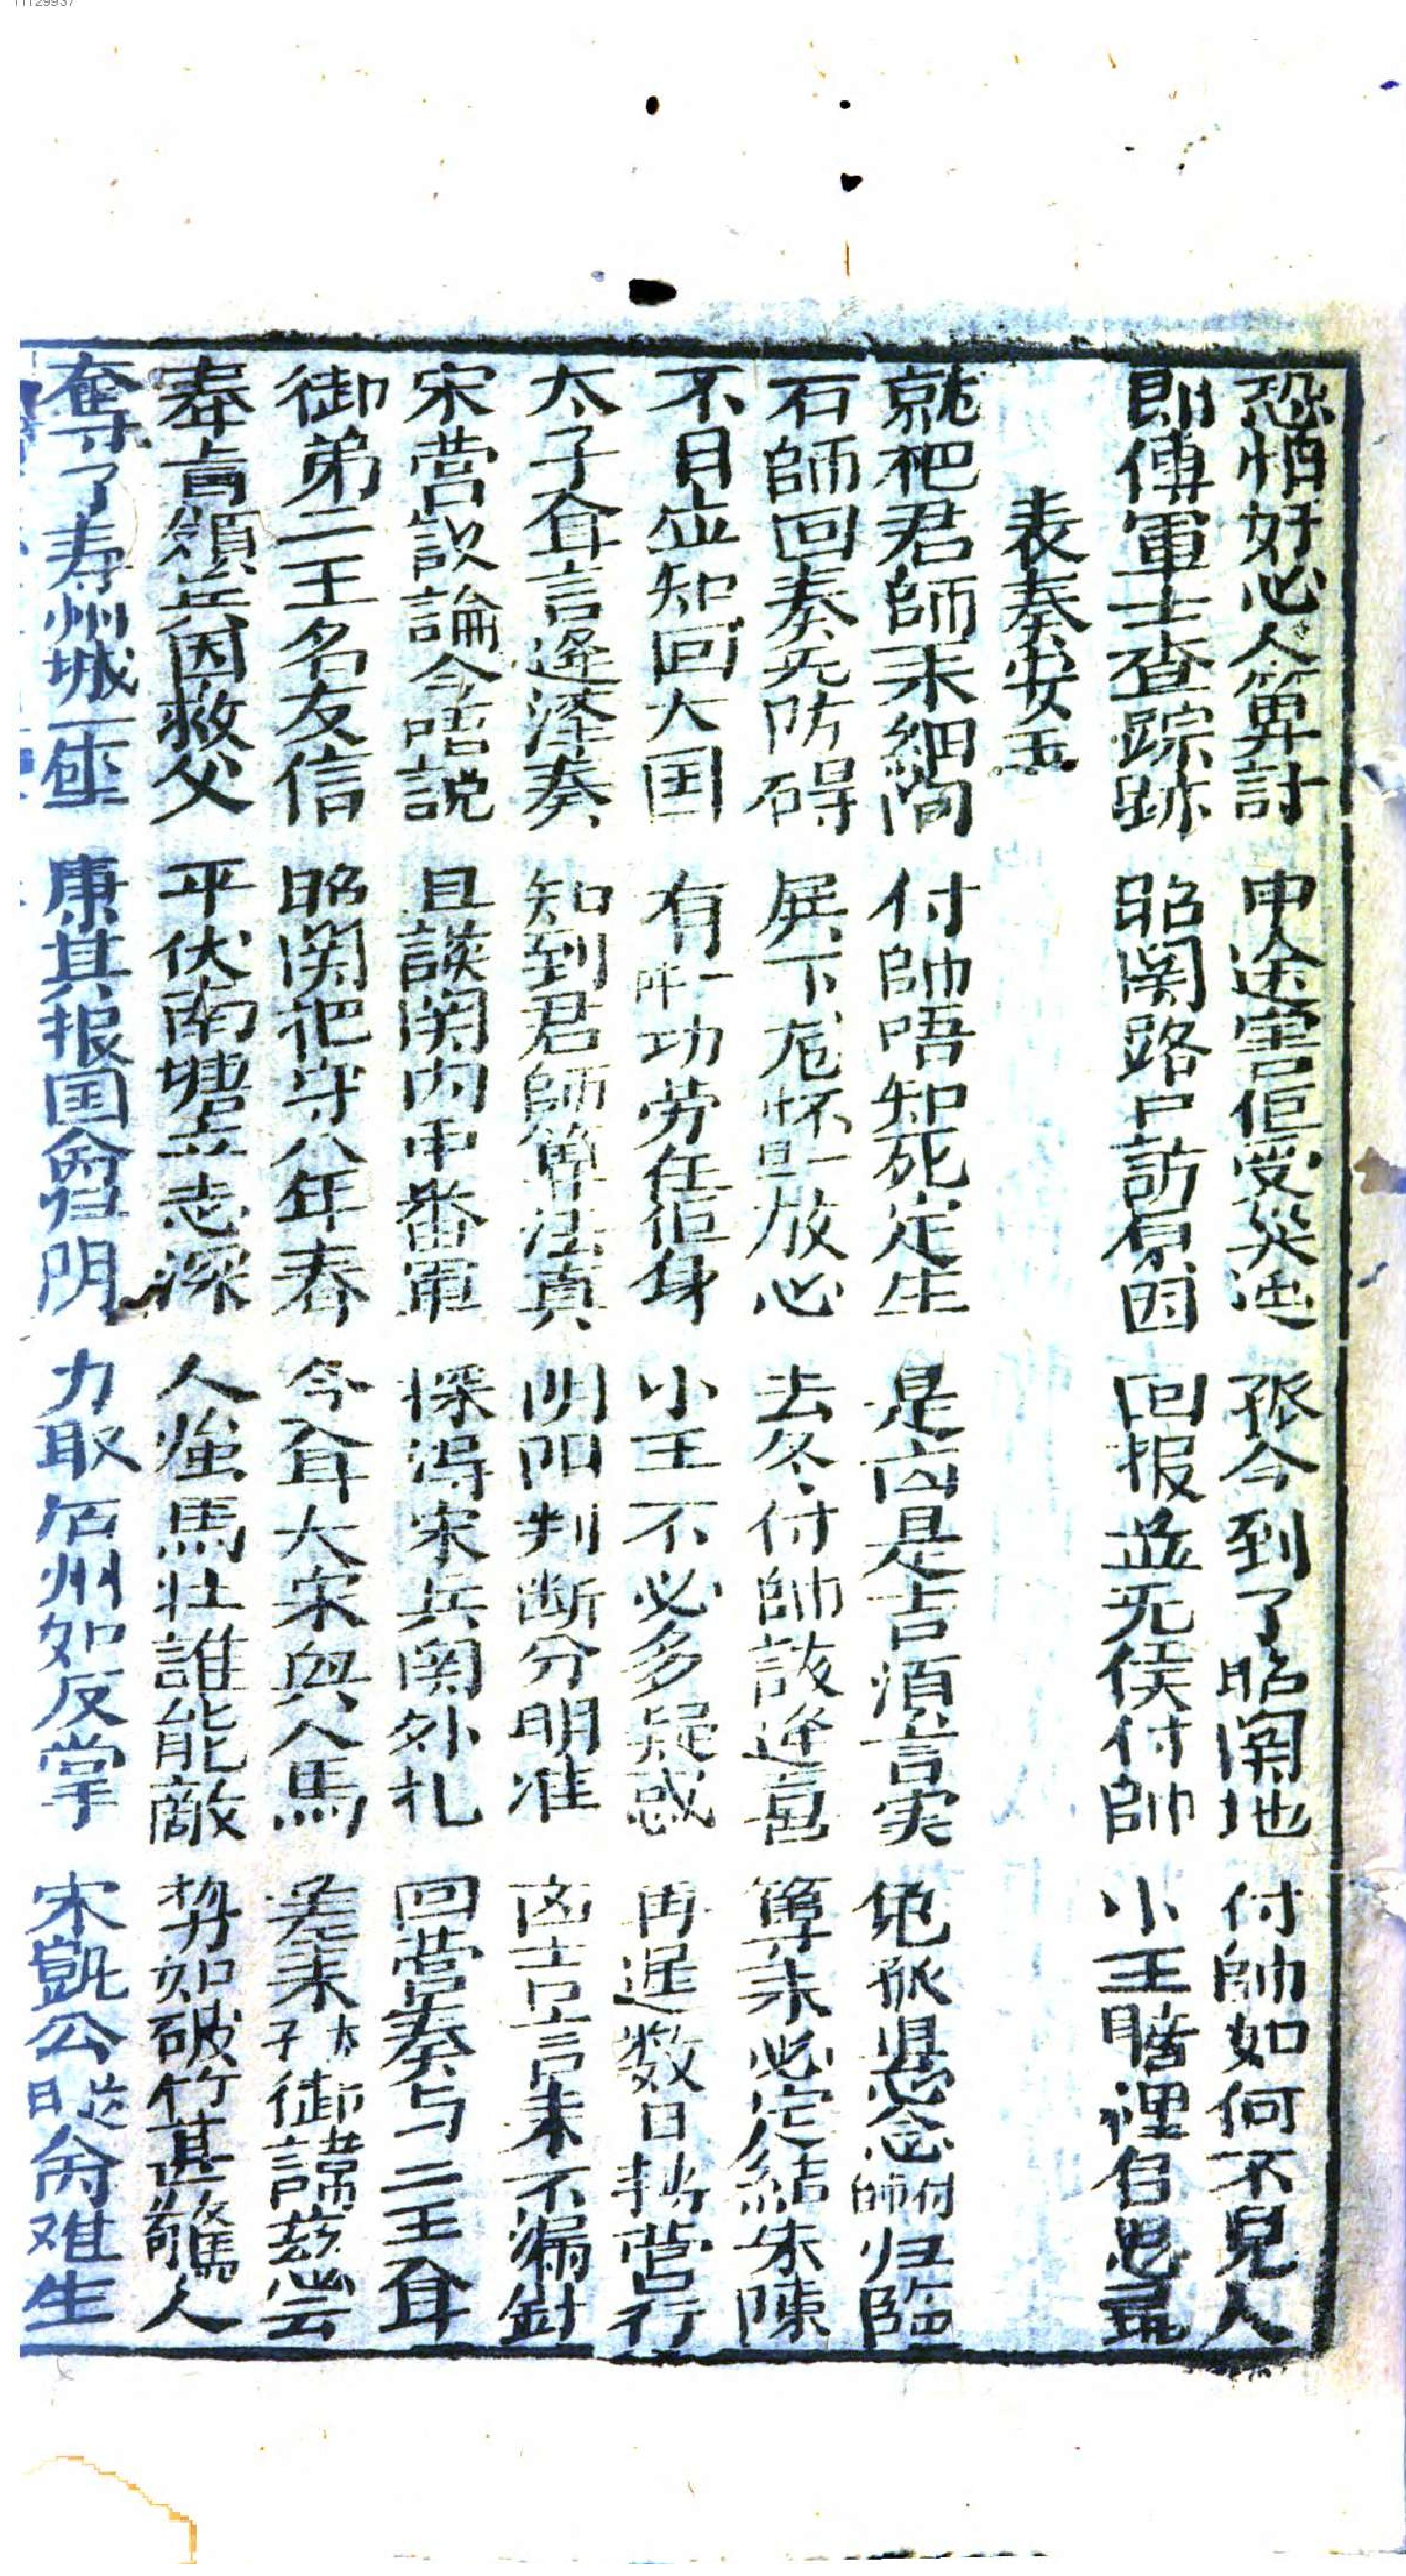 恐怕好心人算計 中途害佢受災迍 孤今到了昭関地 付帥如何不見人
即傳軍士查踪跡 昭関路口訪原因 回报並无侯付帥 小王胆裡自思尋
表奏安玉
就祀君師来細問 付帥唔知死定生 是凶是吉須言实 免孤愳念付師归臨
石師回奏无防碍 屏下宽怀且放心 去冬付帥該逢喜 算来必定結朱陳
不日並知回大国 有一件功劳在佢身 小王不必多疑惑 再遲数日扸营行
太子耷言逢泽奏 知到君師算法真 阴阳判断分明准 凶吉言来不漏針
宋营談論今唔説 且談関内中番軍 探得宋兵関外札 回营奏与二王耷
御弟二王名友信 昭関把守八年春 今耷大宋興人馬 差来太子御諱慈雲
奉旨領兵因救父 平伏南塘立志深 人强馬壮誰能敵 势如破竹甚驚人
奪了寿州城一座 康其报国命归阴 力取石州如反掌 宋凱公然命难生